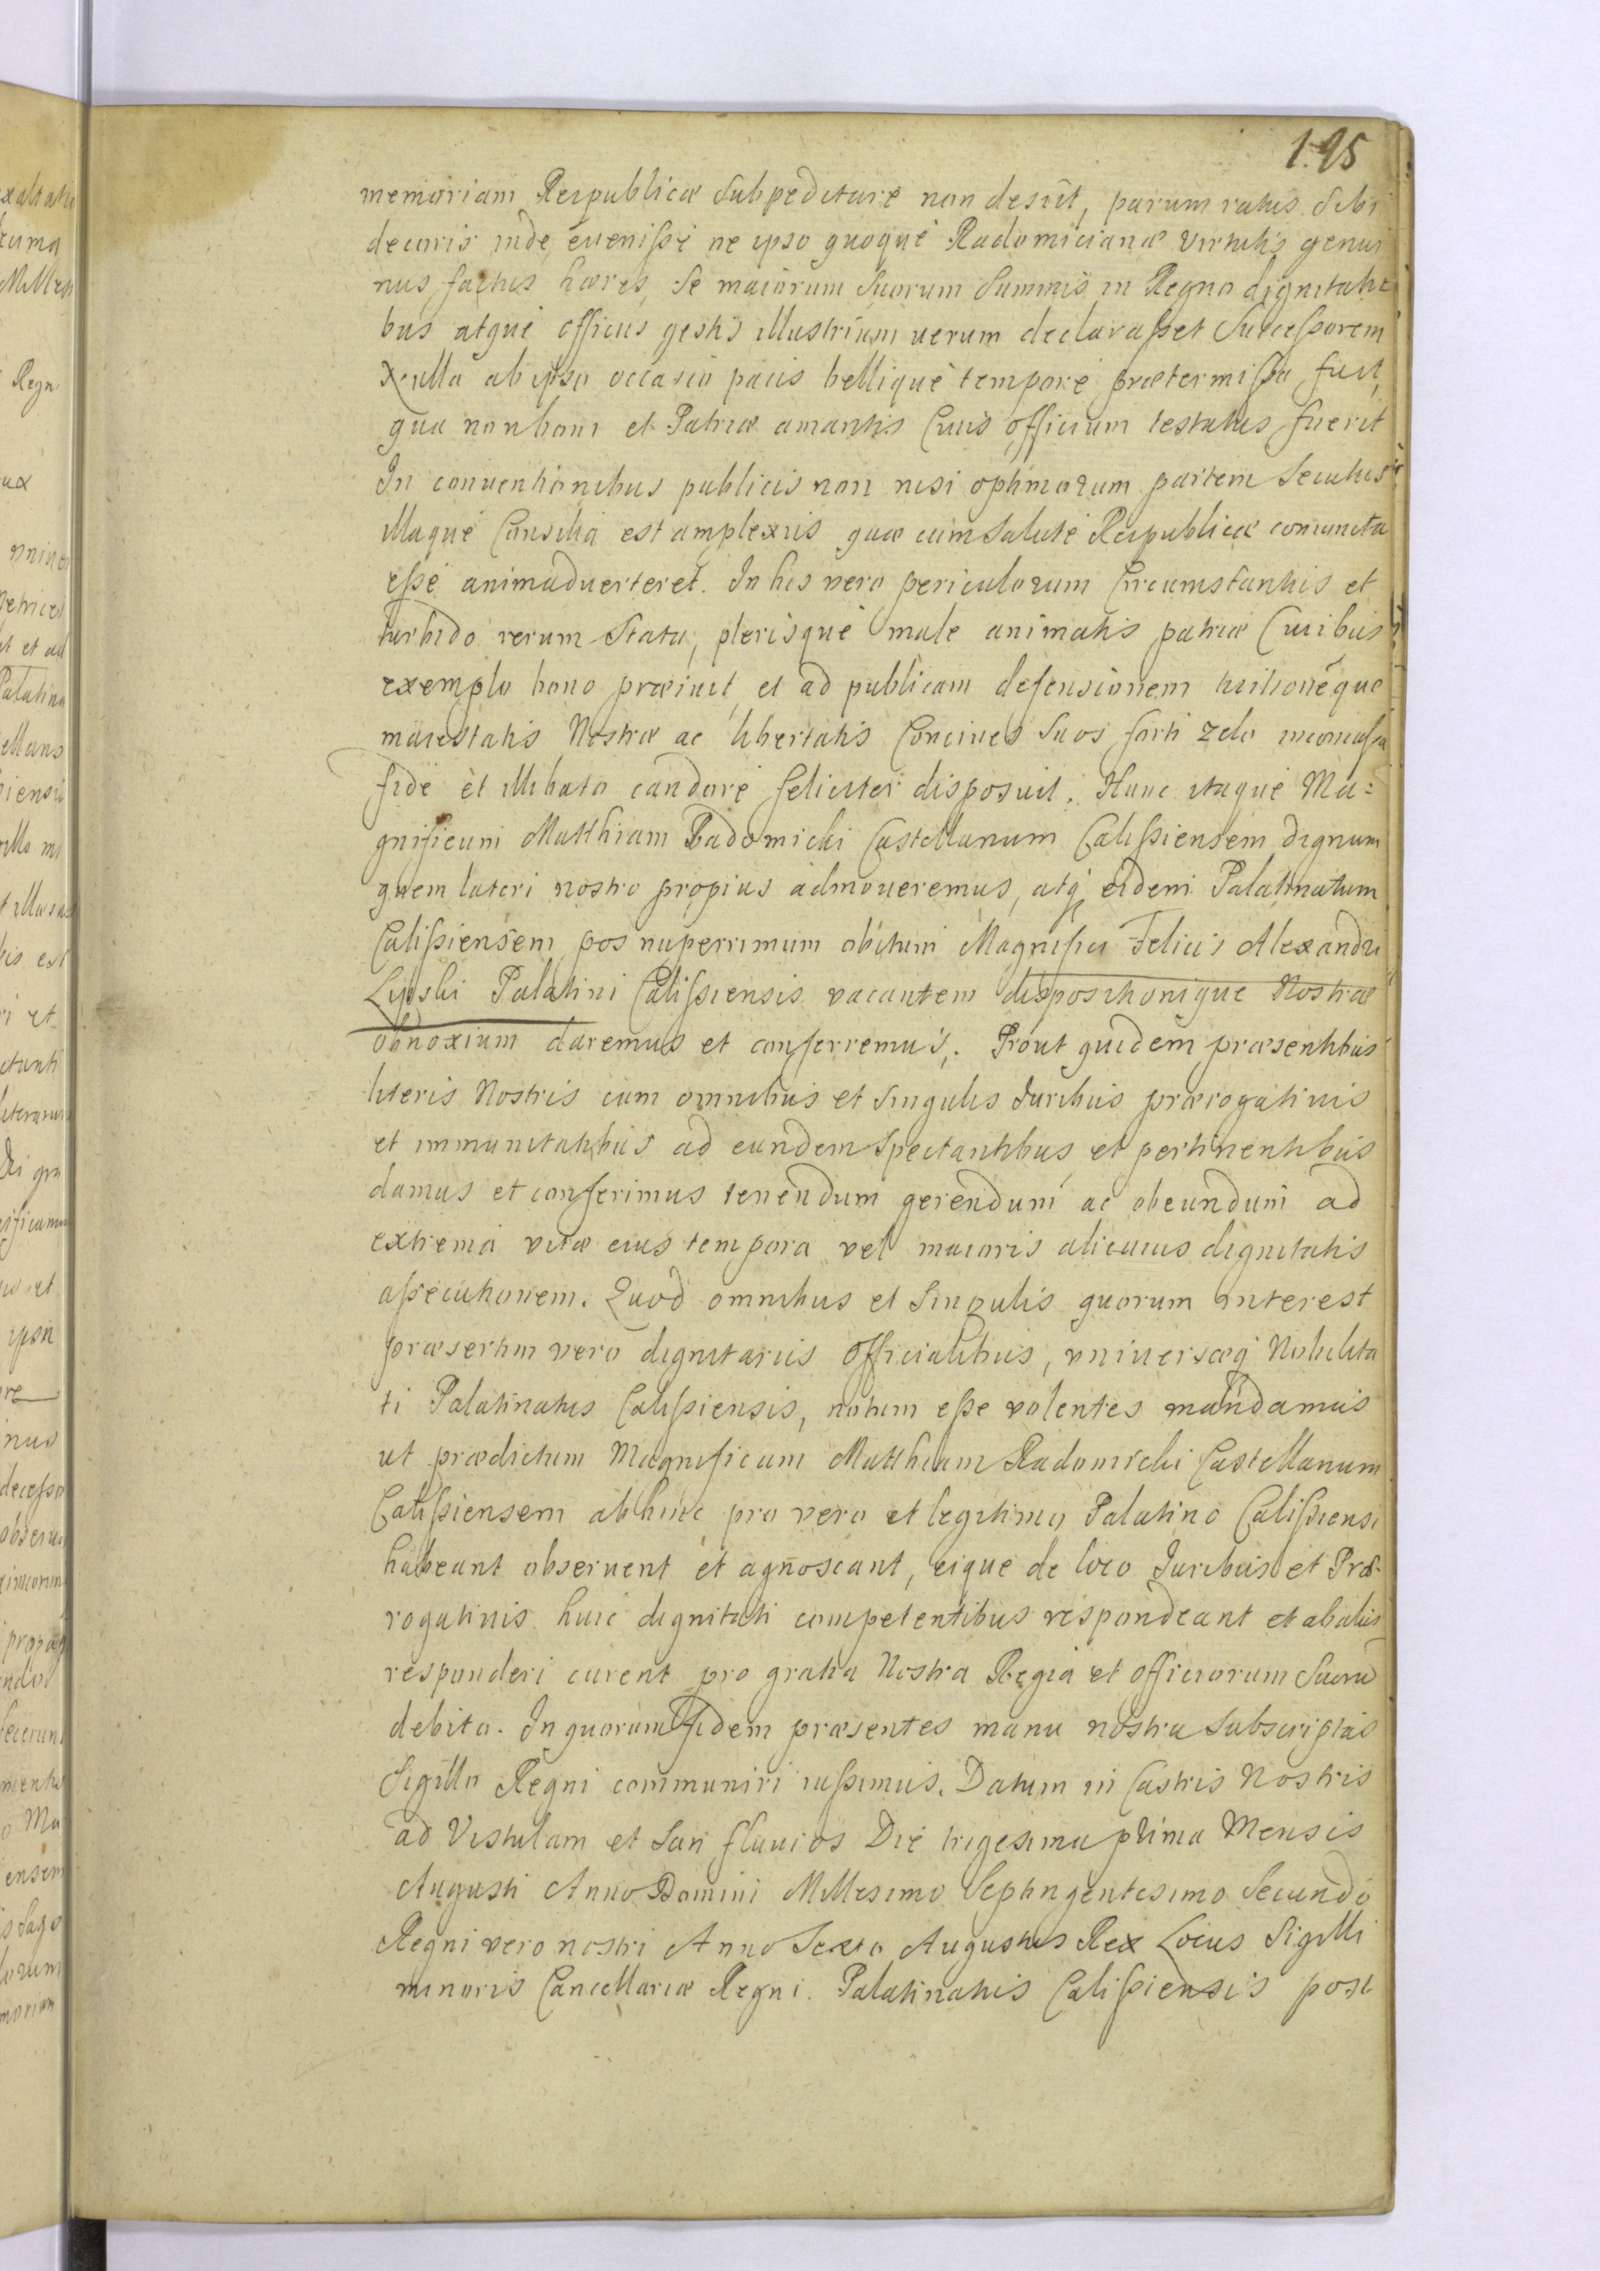 195
memoriam Reipublicæ Subpeditare non desiit, parum ratus Sibi
decoris inde evenisse ne ipso quoque Radomicianæ virtutis genui
nus factus hæres, Se maiorum Suorum Summis in Regno dignitati
bus atque officiis gestis illustrium verum declarasset Successorem
ulla ab ipso occasio pacis bellique tempore prætermissa fuit,
qua non boni et Patriæ amantis Civis officium testatus fuerit
In conventionibus publicis non nisi optimorum partem Secutus
illaque Consilia est amplexus quæ cum Salute Reipublicæ coniuncta
esse animadverteret. In his vero periculorum Circumstantiis et
turbido rerum Statu, plerisque male animatis patriæ Civibus
exemplo bono præivit, et ad publicam defensionem tuitionēque
maiestatis Nostræ ac libertatis Concives Suos forti zelo inconcussa
fide et illibato candore feliciter disposuit. Hunc itaque Ma=
gnificum Matthiam Radomicki Castellanum Calissiensem dignum
quem lateri nostro propius admoveremus, atq eidem Palatinatum
Calissiensem pos nuperrimum obitum Magnifici Felicis Alexandri
Lipski Palatini Calissiensis vacantem dispositionique Nostræ
obnoxium daremus et conferremus. Prout quidem præsentibus
literis Nostris cum omnibus et Singulis Juribus prærogativis
et immunitatibus ad eundem Spectantibus et pertinentibus
damus et conferimus tenendum gerendum ac obeundum ad
extrema vitæ eius tempora vel maioris alicuius dignitatis
assecutionem. Quod omnibus et Singulis quorum interest
præsertim vero dignitariis officialibus, universæq Nobilita
ti Palatinatus Calissiensis, notum esse volentes mandamus
ut prædictum Magnificum Matthiam Radomicki Castellanum
Calissiensem abhinc pro vero et legitimo Palatino Calissiensi
habeant observent et agnoscant, eique de loco Juribus et Præ-
rogativis huic dignitati competentibus respondeant et ab aliis
responderi curent pro gratia Nostra Regia et officiorum Suorū
debito. In quorum fidem præsentes manu nostra Subscriptas
Sigillo Regni communiri iussimus. Datum in Castris Nostris
ad Vistulam et San fluvios Die trigesima prima Mensis
Augusti Anno Domini Millesimo Septingentesimo Secundo
Regni vero nostri Anno Sexto Augustus Rex Locus Sigilli
minoris Cancellariæ Regni. Palatinatus Calissiensis post